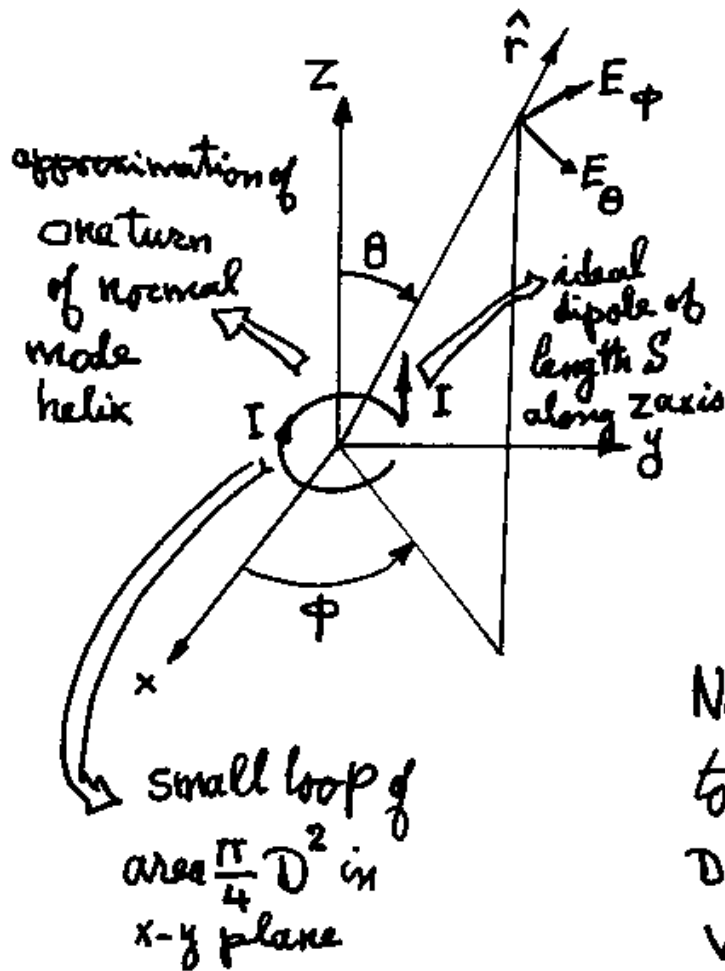 r̂
Z
E φ
E θ
approximation of
one turn
of normal
mode
helix
θ
ideal
dipole of
length S
along z axis
I
I
y
φ
x
small loop of
area π/4 D² in
x-y plane
N
to
D
V